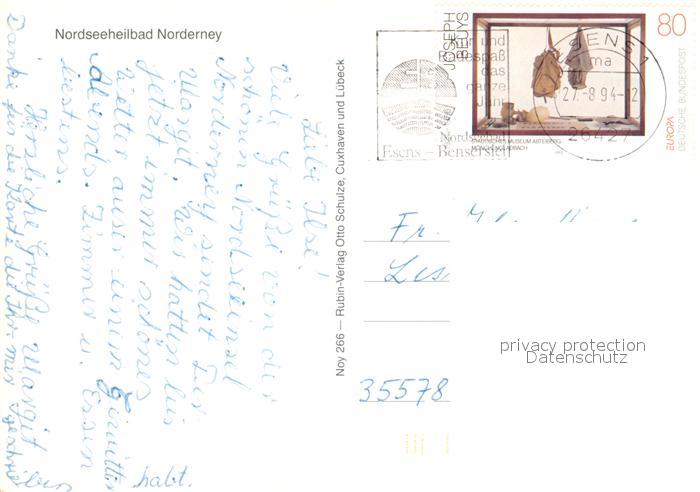 Nordseeheilbad Norderney
Liebe Ilse!
Viele Grüße von der
schönen Nordseeinsel
Norderney sendet Dir
Margit. Wir hatten bis
jetzt immer schönes
Wetter außer einem Gewitter
abends. Zimmer u. Essen
bestens.
Herzliche Grüße Margit
Danke für die Karte die Ihr mir
habt.
Noy 266 — Rubin-Verlag Otto Schulze, Cuxhaven und Lübeck
JOSEPH
BEUYS
80
DEUTSCHE BUNDESPOST
EUROPA
STÄDTISCHES MUSEUM ABTEIBERG
MÖNCHENGLADBACH
und
das
ganze
Jahr
Nordseebad
Esens – Bensersiel
ESENS 1
ma
27.-8.94-12
26427
Fr.
35578
privacy protection
Datenschutz